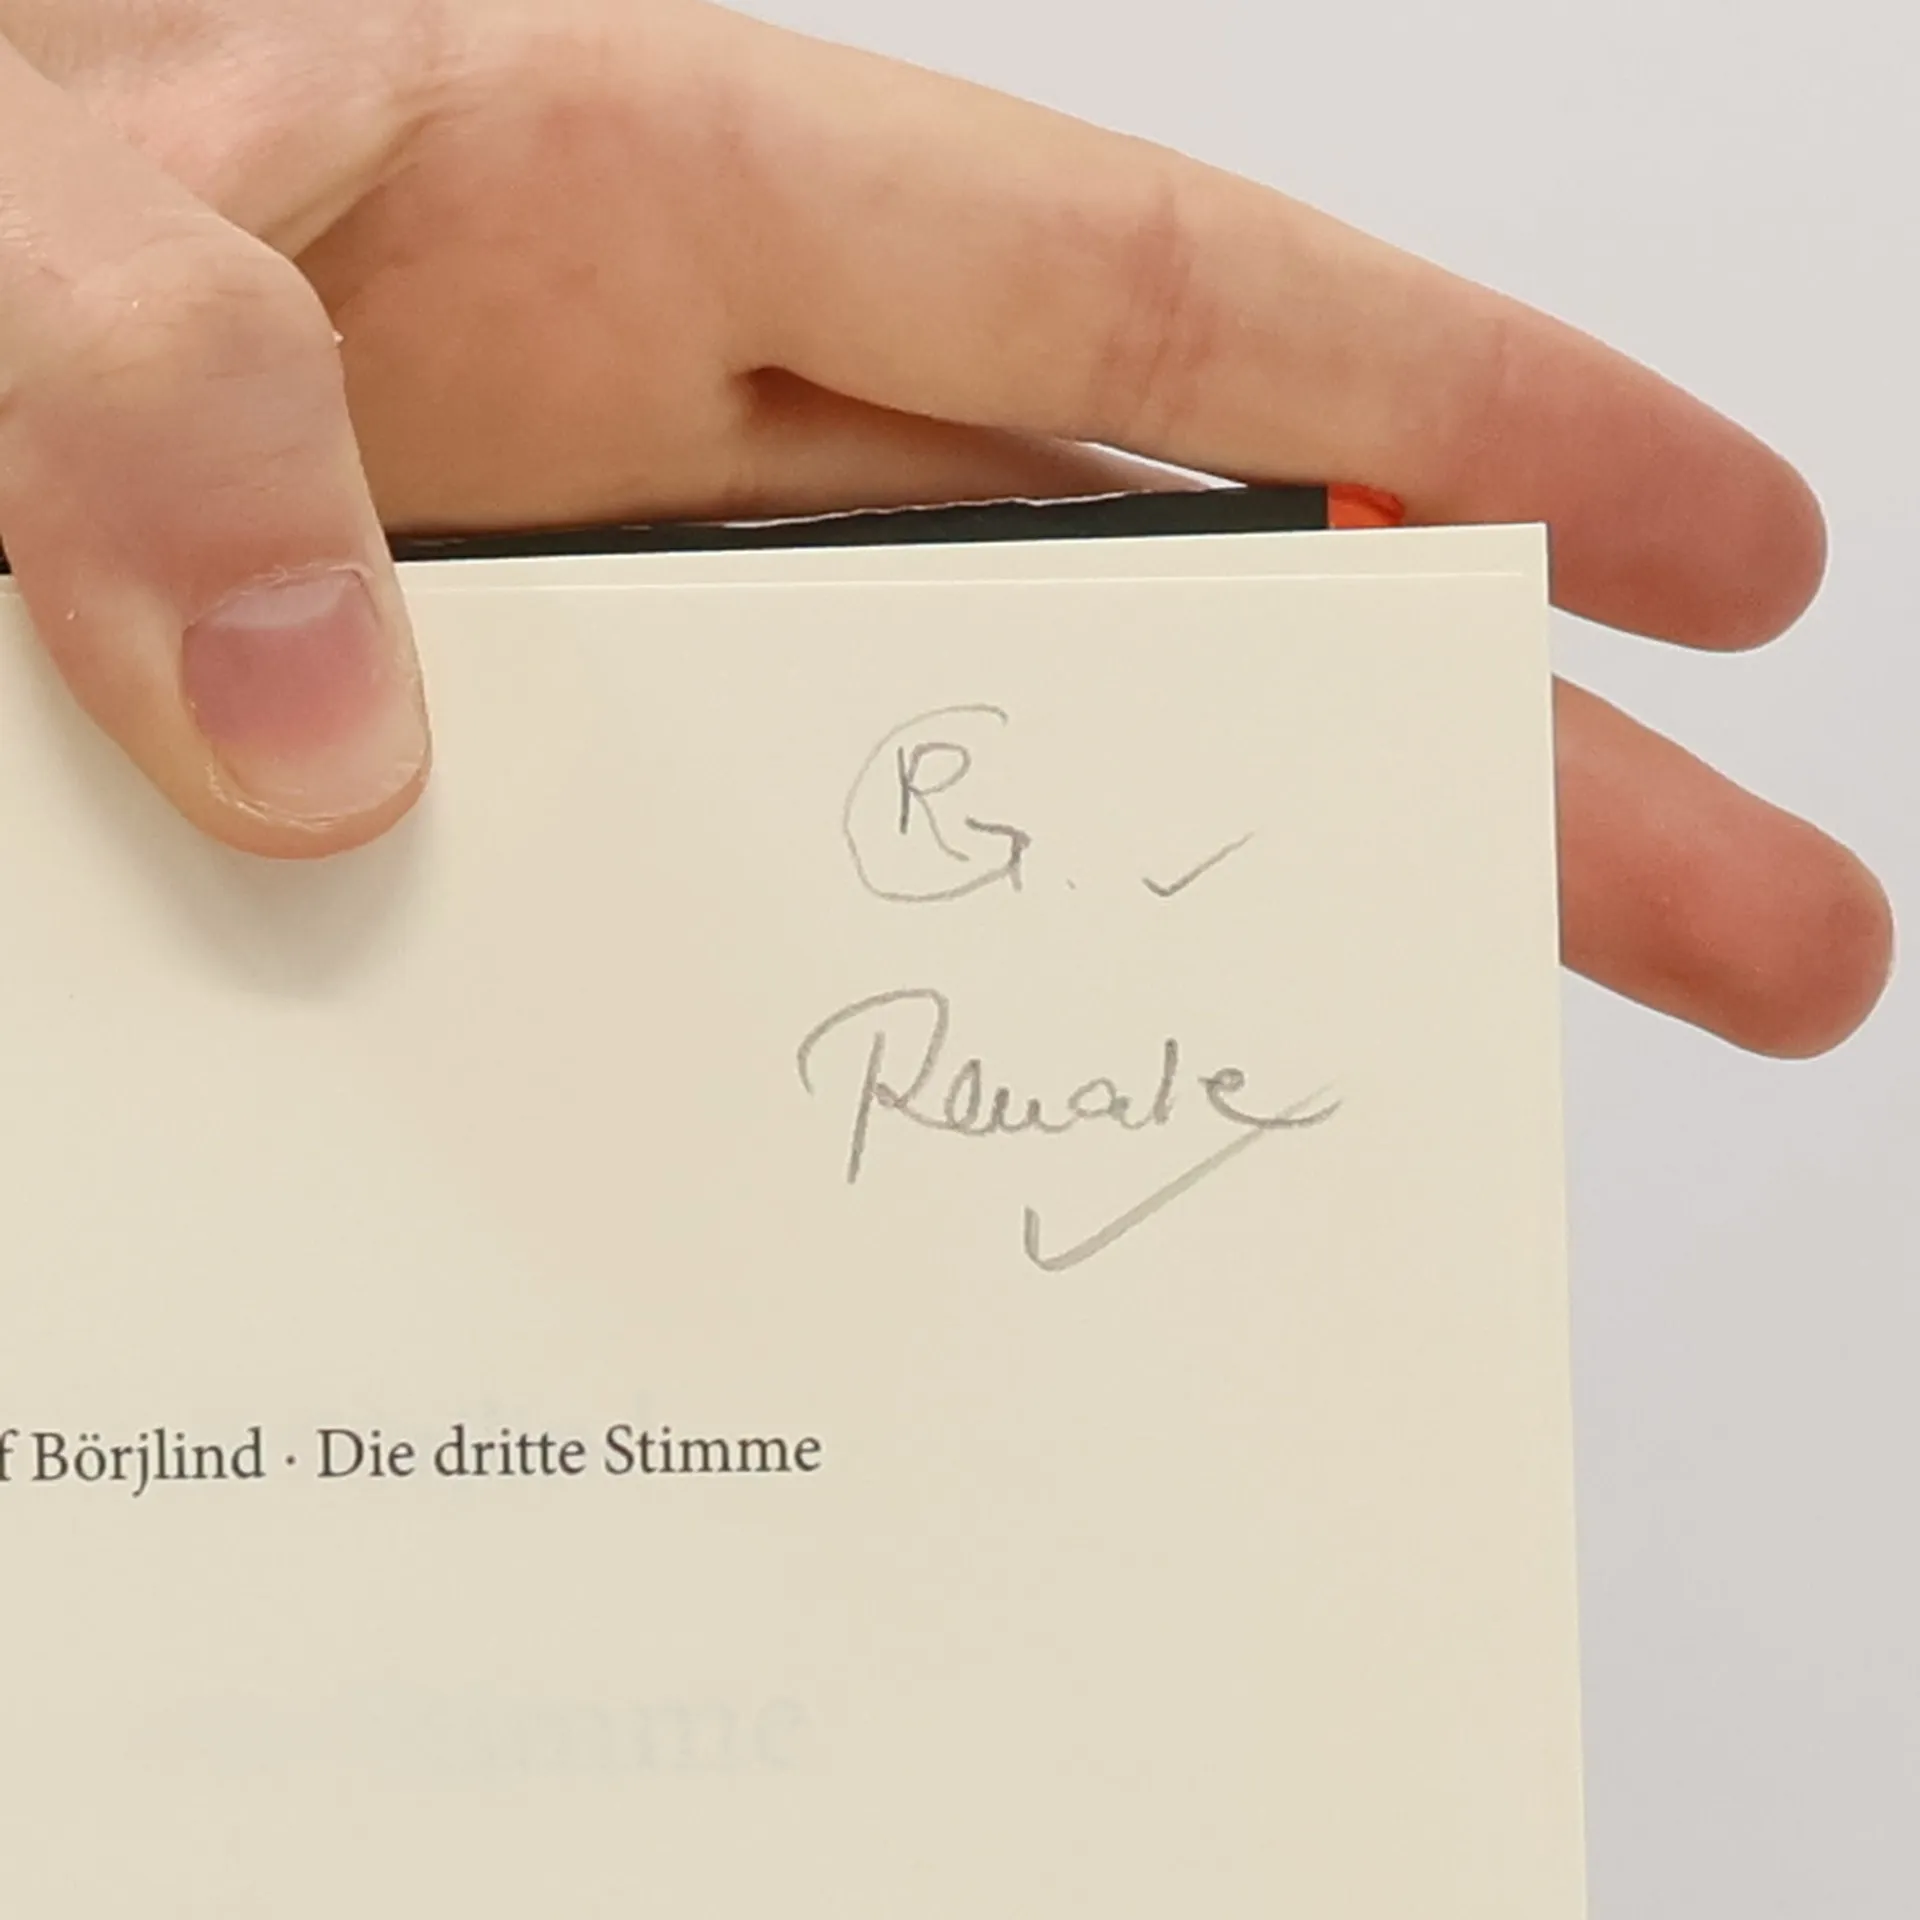 RG. ✓
Renate
✓
f Börjlind · Die dritte Stimme